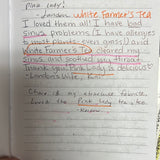 Pink Lady!
- London, White Farmer's Tea
I loved them all! I have bad
sinus problems (I have allergies
to most plants even grass) and
White Farmer's Tea cleared my
sinus and soothed my throat.
Thank you! Pink Lady is delicious!
- London's Wife,
One of my absolute favorite
the Pink Lady
- Karen